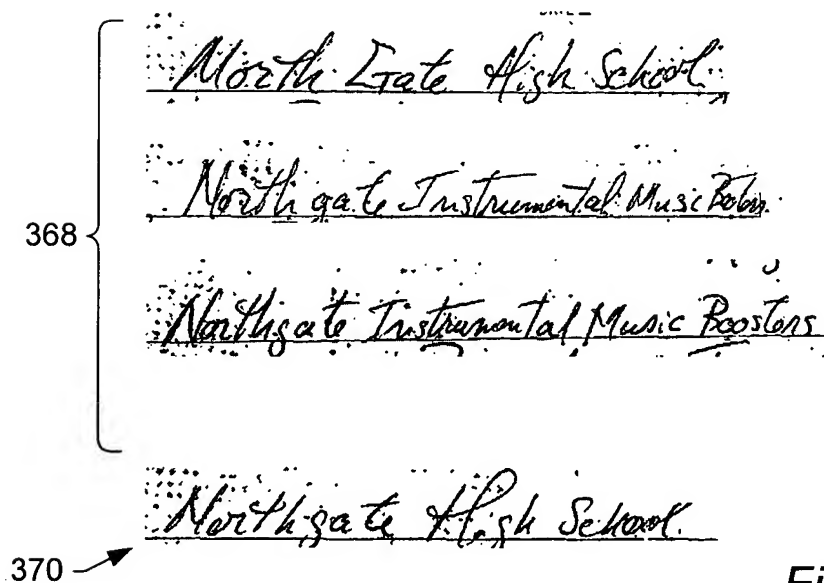 North Gate High School
368
Northgate Instrumental Music
Northgate Instrumental Music Boosters
Northgate High School
370